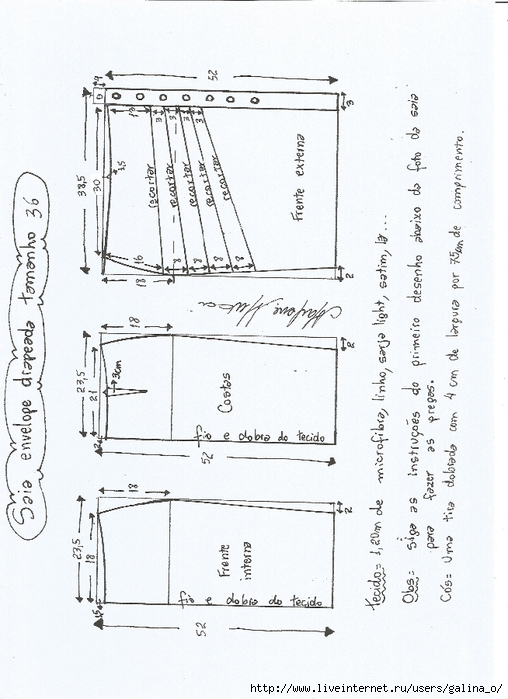 Saia envelope drapeada tamanho 36
52
4
3
38,5
30
1,5
13
3
3
3
recortar
recortar
recortar
recortar
16
18
8
8
8
8
2
Frente externa
23,5
21
2
3cm
18
2
Costas
fio e dobra do tecido
52
23,5
18
1,5
18
2
Frente
interna
fio e dobra do tecido
52
Tecido= 1,20m de microfibra, linho, sarja light, satim, lã...
Obs= siga as instruções do primeiro desenho abaixo da foto da saia
para fazer as pregas.
Cós= Uma tira dobrada com 4 cm de largura por 75cm de comprimento.
http://www.liveinternet.ru/users/galina_o/